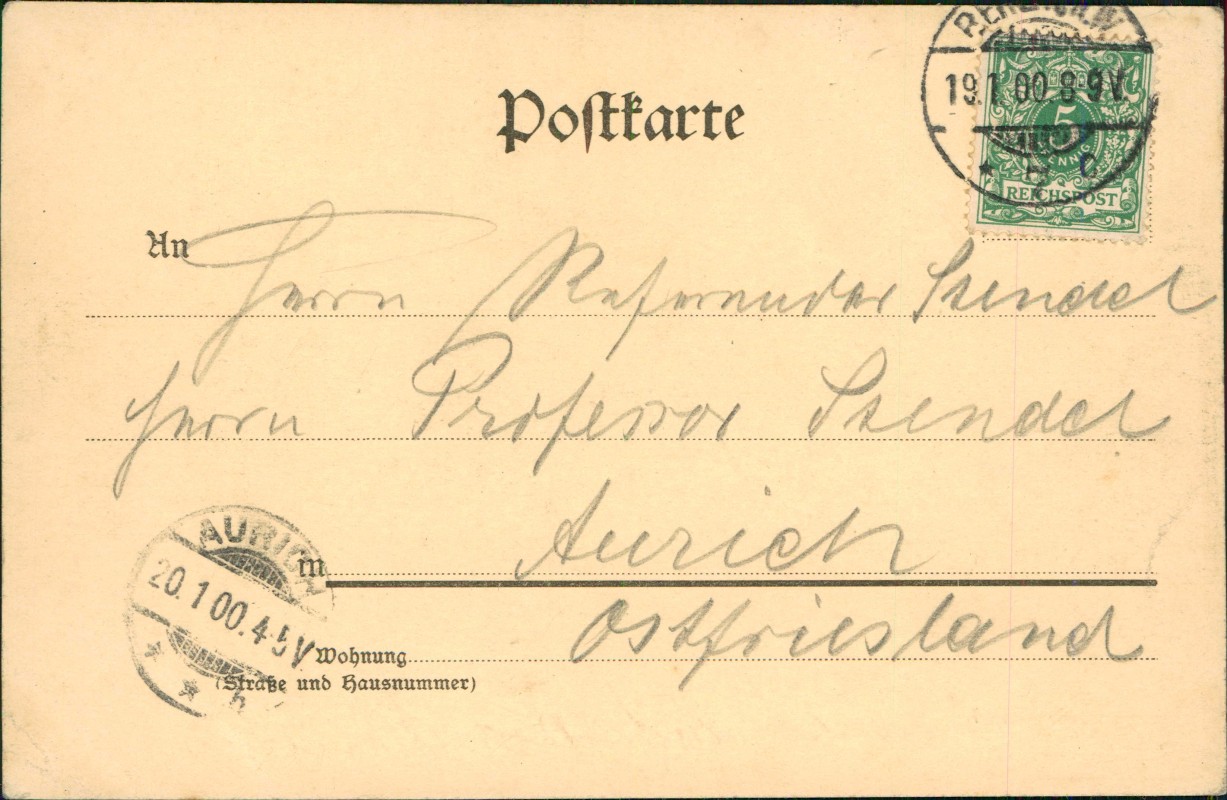 Postkarte
BERLIN W
19.1.00.8-9V.
* c
5
PFENNIG
REICHSPOST
An
Herrn Referendar Stendel
Herrn Professor Stendel
in Aurich
Ostfriesland
Wohnung
(Straße und Hausnummer)
AURICH
20.1.00.4-5V
* * b